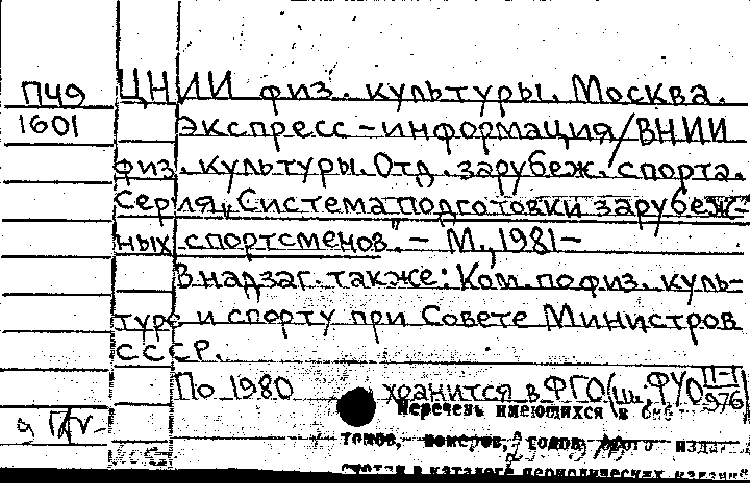 ПЧ9 ЦНИИ физ. культуры. Москва.
1601 Экспресс-информация/ВНИИ
физ. культуры. Отд. зарубеж. спорта.
Серия „Система подготовки зарубеж-
ных спортсменов". – М., 1981 –
В надзаг. также: Ком. по физ. куль-
туре и спорту при Совете Министров
СССР.
По 1980 хранится в ФГО (ш. ФУО II-1/976)
Перечень имеющихся в биб
томов, номеров, годов этого издан
смотри в каталоге периодических изданий